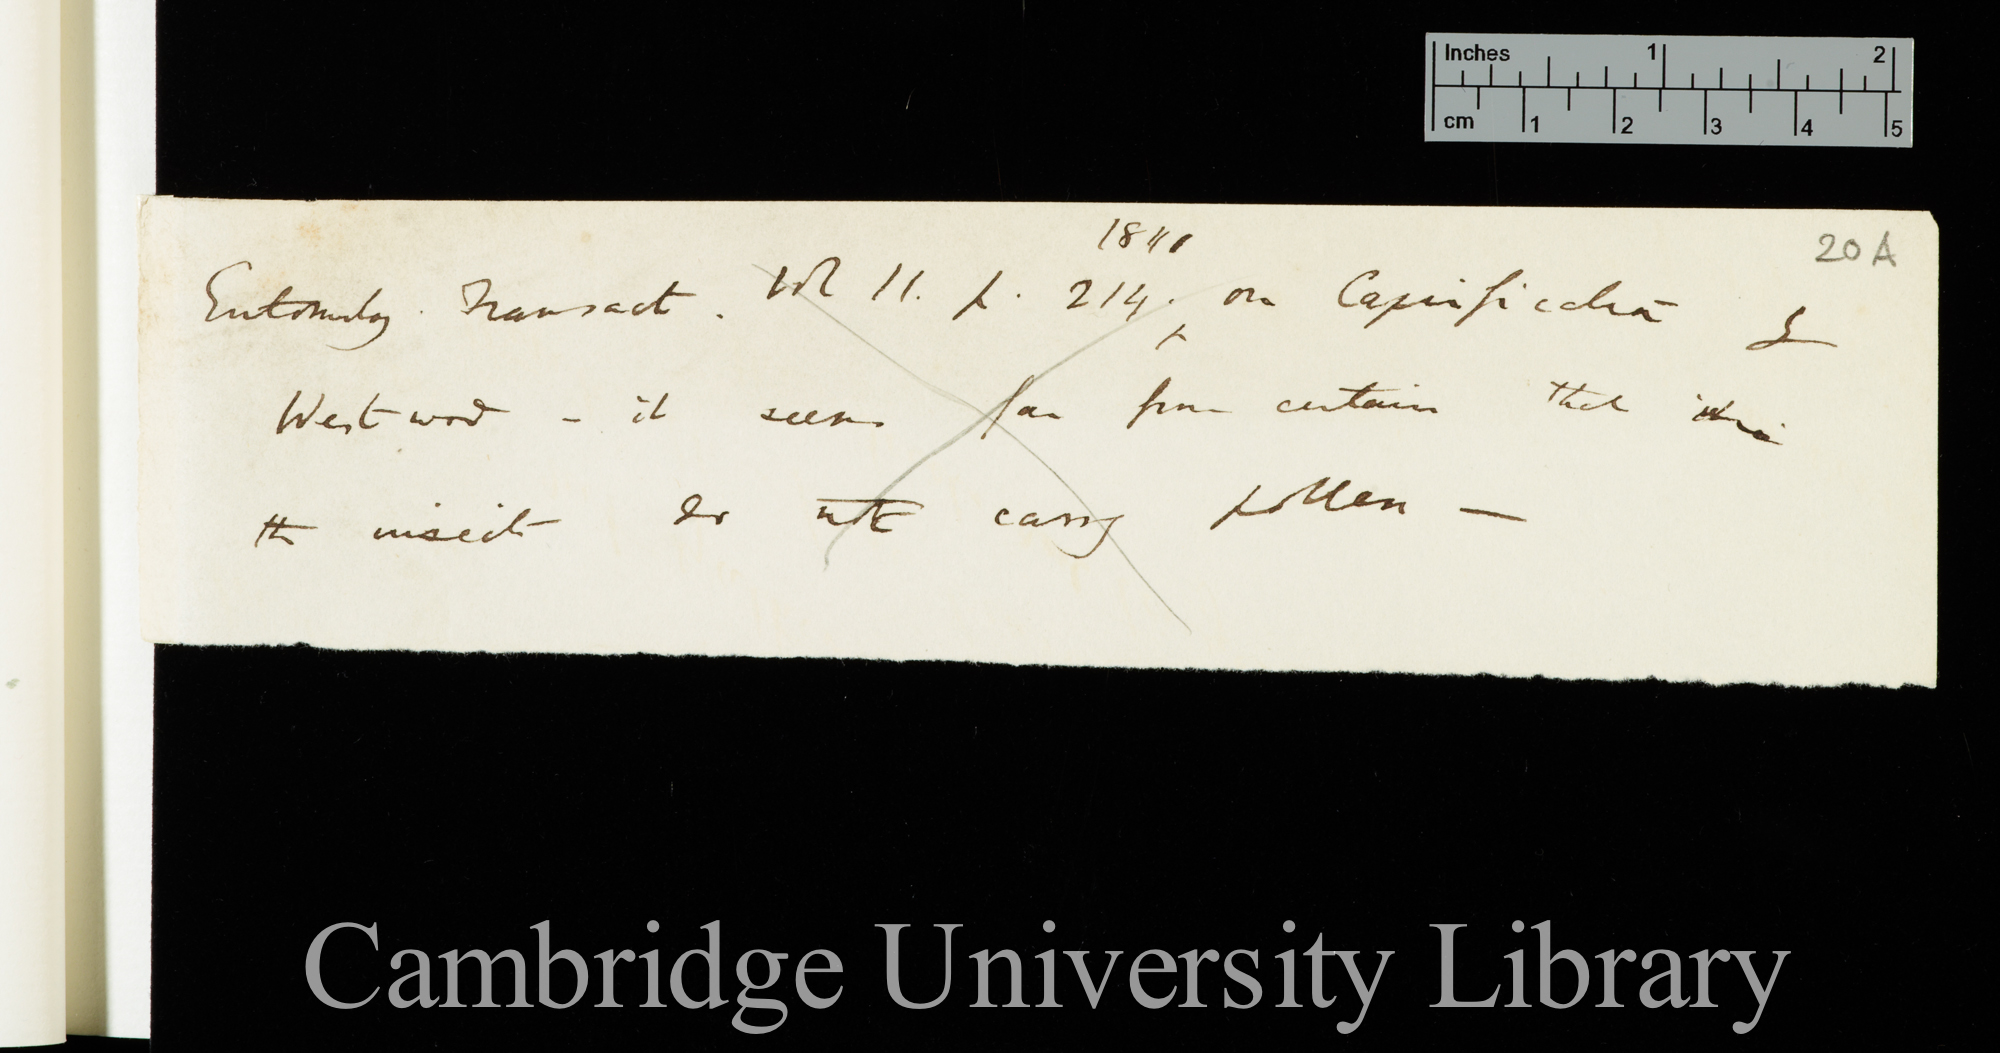 Inches 1 2
cm 1 2 3 4 5
20A
1840
Entomolog. Transact. Vol 11. p. 214. on Caprification by
Westwood - it seems far from certain that
the insects do not carry pollen —
Cambridge University Library